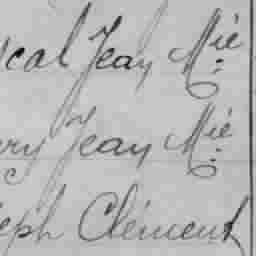 cal Jean Mie
ry Jean Mie
eph Clément